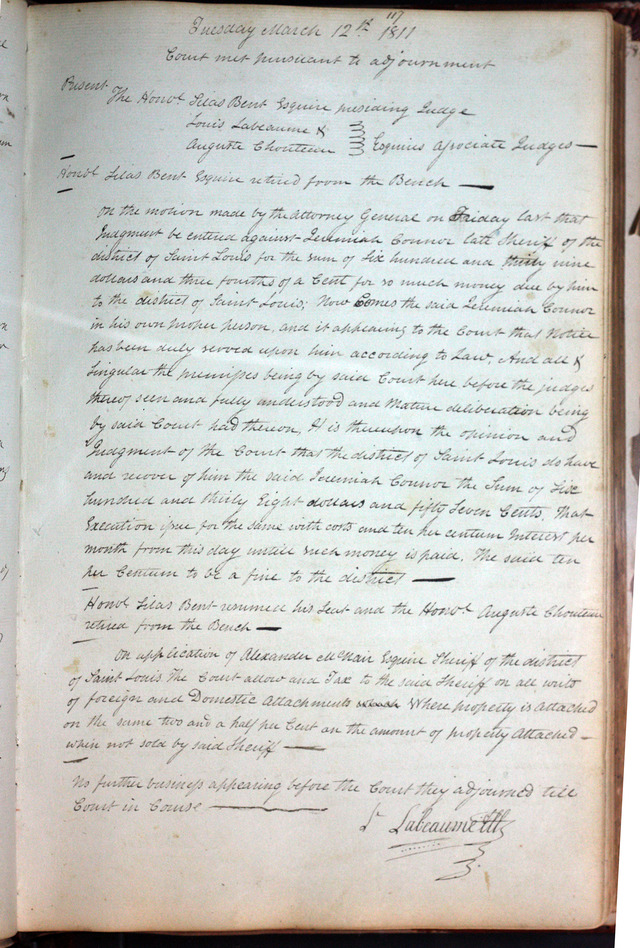 117
Tuesday March 12th 1811
Court met pursuant to adjournment
Present
The Honbl Silas Bent Esquire presiding Judge
Louis Labeaume &
Auguste Chouteau } Esquires Associate Judges —
Honbl Silas Bent Esquire retired from the Bench —
On the motion made by the Attorney General on Friday last that
Judgment be entered against Jeremiah Connor late Sheriff of the
district of Saint Louis for the sum of Six hundred and thirty nine
dollars and three fourths of a Cent for so much money due by him
to the district of Saint Louis; Now Comes the said Jeremiah Connor
in his own proper person, and it appearing to the Court that Notice
has been duly served upon him according to Law, And all &
Singular the premises being by said Court here before the judges
thereof seen and fully understood and Mature deliberation being
by said Court had thereon, It is thereupon the opinion and
Judgment of the Court that the district of Saint Louis do have
and recover of him the said Jeremiah Connor the Sum of Six
hundred and thirty Eight dollars and fifty Seven Cents. That
Execution issue for the same with costs and ten per centum Interest per
month from this day untill such money is paid, The said ten
per Centum to be a fine to the district —
Honbl Silas Bent resumed his Seat and the Honbl Auguste Chouteau
retired from the Bench —
On application of Alexander McNair Esquire Sheriff of the district
of Saint Louis The Court allow and Tax to the said Sheriff on all writs
of foreign and Domestic Attachments Where property is attached
on the same two and a half per Cent on the amount of property Attached —
when not sold by said Sheriff —
No further business appearing before the Court they adjourned till
Court in Course —
Ls Labeaume